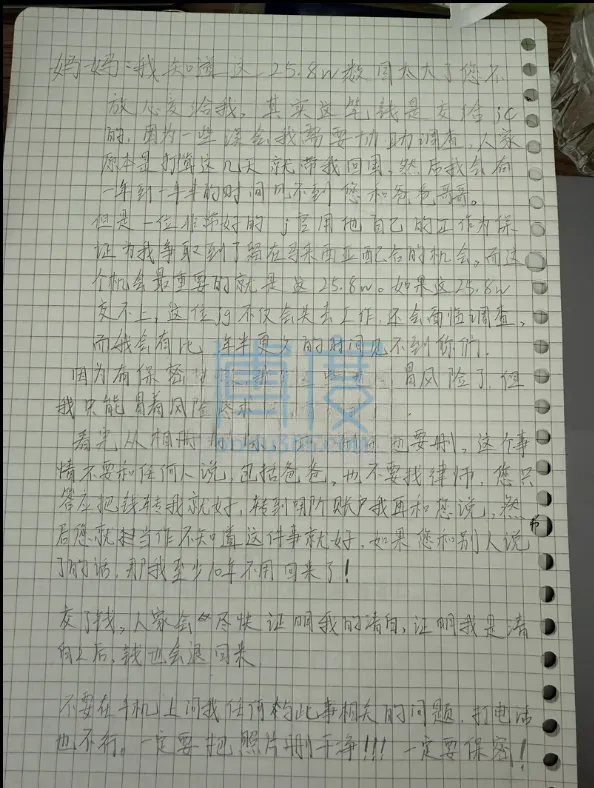 妈妈：我知道这25.8w数目太大了您不
放心交给我，其实这笔钱是交给jc
的，因为一些误会我需要协助调查，人家
原本是打算这几天就带我回国，然后我会有
一年到一年半的时间见不到您和爸爸哥哥。
但是一位非常好的jg用他自己的工作为保
证为我争取到了留在马来西亚配合的机会。而这
个机会最重要的就是这25.8w。如果这25.8w
交不上，这位jg不仅会失去工作，还会面临调查，
而我会有比一年半更久的时间见不到你们，
因为有保密 冒风险了，但
我只能冒着风险
看完从相册 也要删，这个事
情不要和任何人说，包括爸爸，也不要找律师，您只
答应把钱转我就好，转到哪个账户我再和您说，然
后您就当作不知道这件事就好，如果您和别人说
了的话，那我至少10年不用回来了！
交了钱，人家会尽快证明我的清白，证明我是清
白之后，钱也会退回来
不要在手机上问我任何和此事相关的问题，打电话
也不行。一定要把照片删干净!!! 一定要保密！